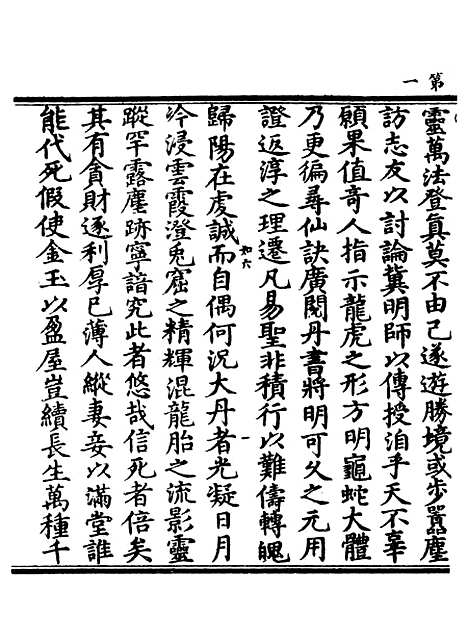 第一
靈萬法登真莫不由己遂遊勝境或步囂塵
訪志友以討論冀明師以傳授洎乎天不辜
願果值奇人指示龍虎之形方明龜蛇大體
乃更徧尋仙訣廣閱丹書將明可久之元用
證返淳之理遷凡易聖非積行以難儔轉魄
歸陽在虔誠而自偶何況大丹者光凝日月
和六
冷浸雲霞澄兎窟之精輝混龍胎之流影靈
蹤罕露塵跡寧諳究此者悠哉信死者倍矣
其有貪財逐利厚己薄人縱妻妾以滿堂誰
能代死假使金玉以盈屋豈續長生萬種千